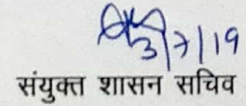 3/7/19
संयुक्त शासन सचिव